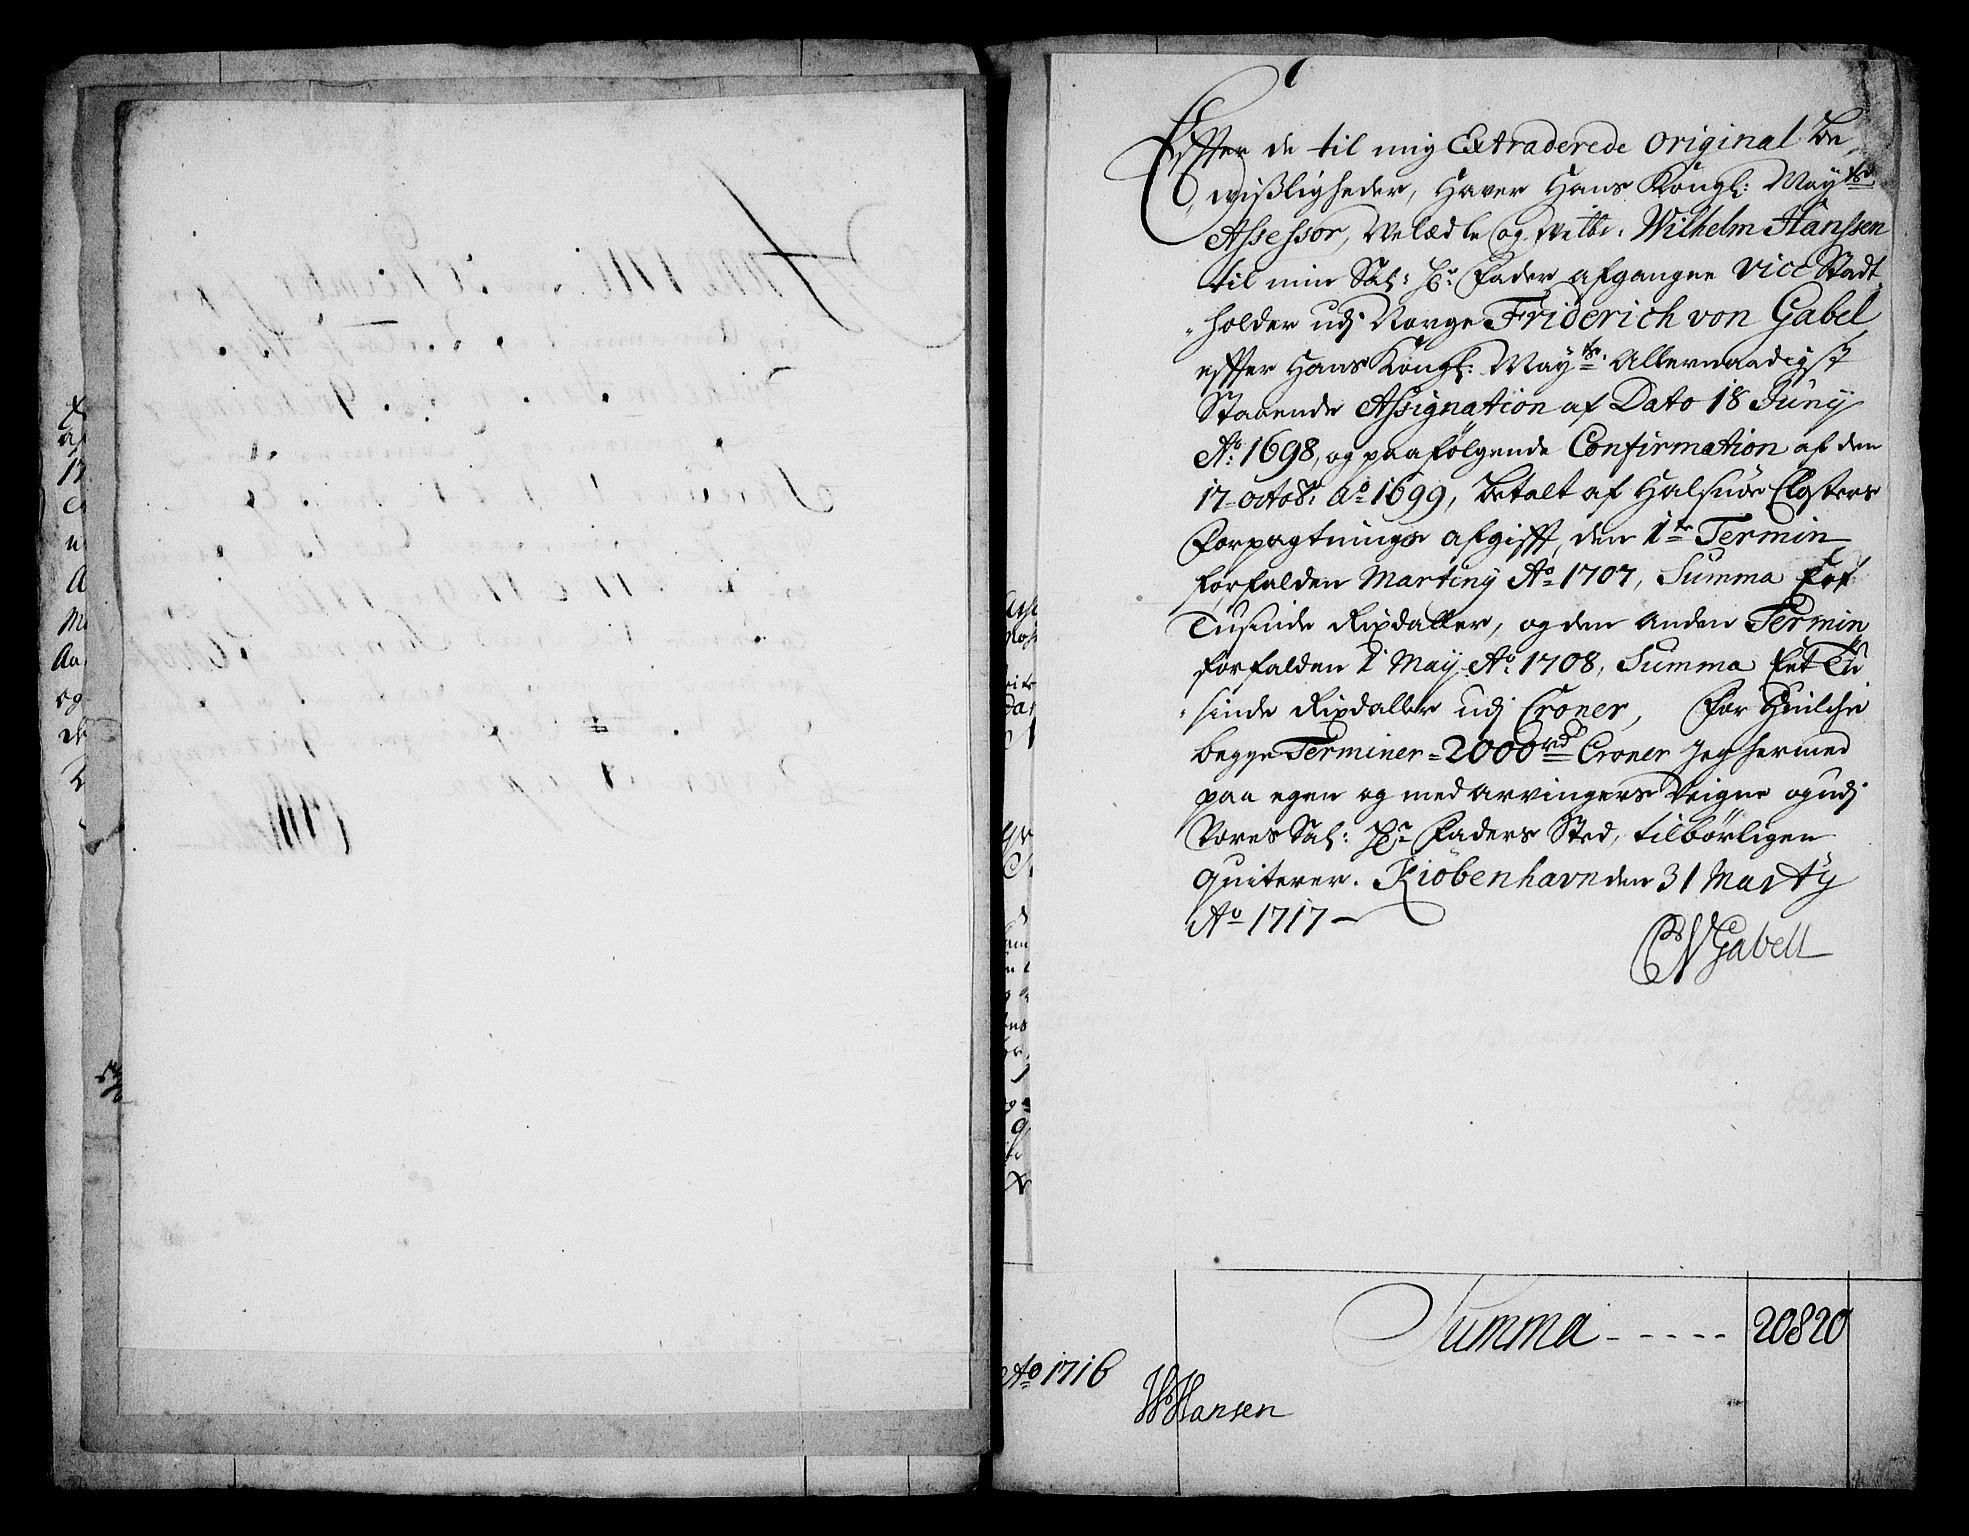 Effter de til mig Extraderede original Be,
wißligheder, Haver Hans Kongl: May:ts
Assessor, Velædle og Welbr: Wilhelm Hanssen
til min Sal: Hr: Fader afgangne Vice Stadt,
holder udj Norge Friderich von Gabel,
effter Hans Kongl: May:ts Allernaadigst
Staaende Assignation af Dato 18 Junij
Ao: 1698, og paafølgende Confirmation af den
17 octobr: Ao 1699, betalt af Halsnøe Closters
Forpagtnings afgifft, den 1te Termin
forfalden Martiny Ao 1707, Summa Eet
Tusinde Rixdaller, og den anden Termin
forfalden 1 May Ao: 1708, Summa Eet Tu
sinde Rixdaller udj Croner, for Huilche
begge Terminer = 2000 rd Croner jeg hermed
paa egen og med arvingers Veigne og udj
Vores Sal: Hr Faders Sted, tilbørligen
quiterer. Kiöbenhavn den 31 Marty
Ao 1717
CV Gabell
Summa - - - - - 20820
Ao 1716
WHansen